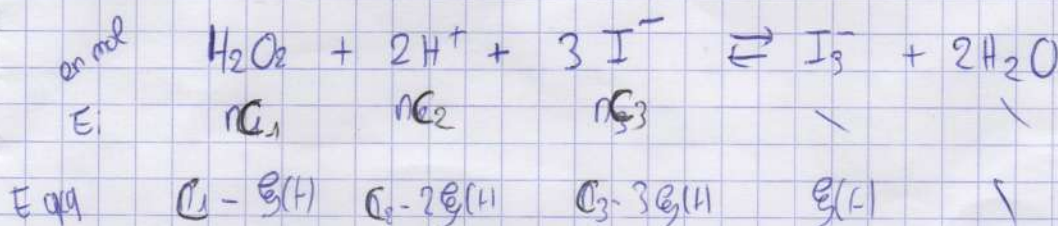 en mol H₂O₂ + 2H⁺ + 3 I⁻ ⇄ I₃⁻ + 2H₂O
Ei C₁ C₂ C₃ \ \
E C₁ - ξ(t) C₂ - 2ξ(t) C₃ - 3ξ(t) ξ(t) \